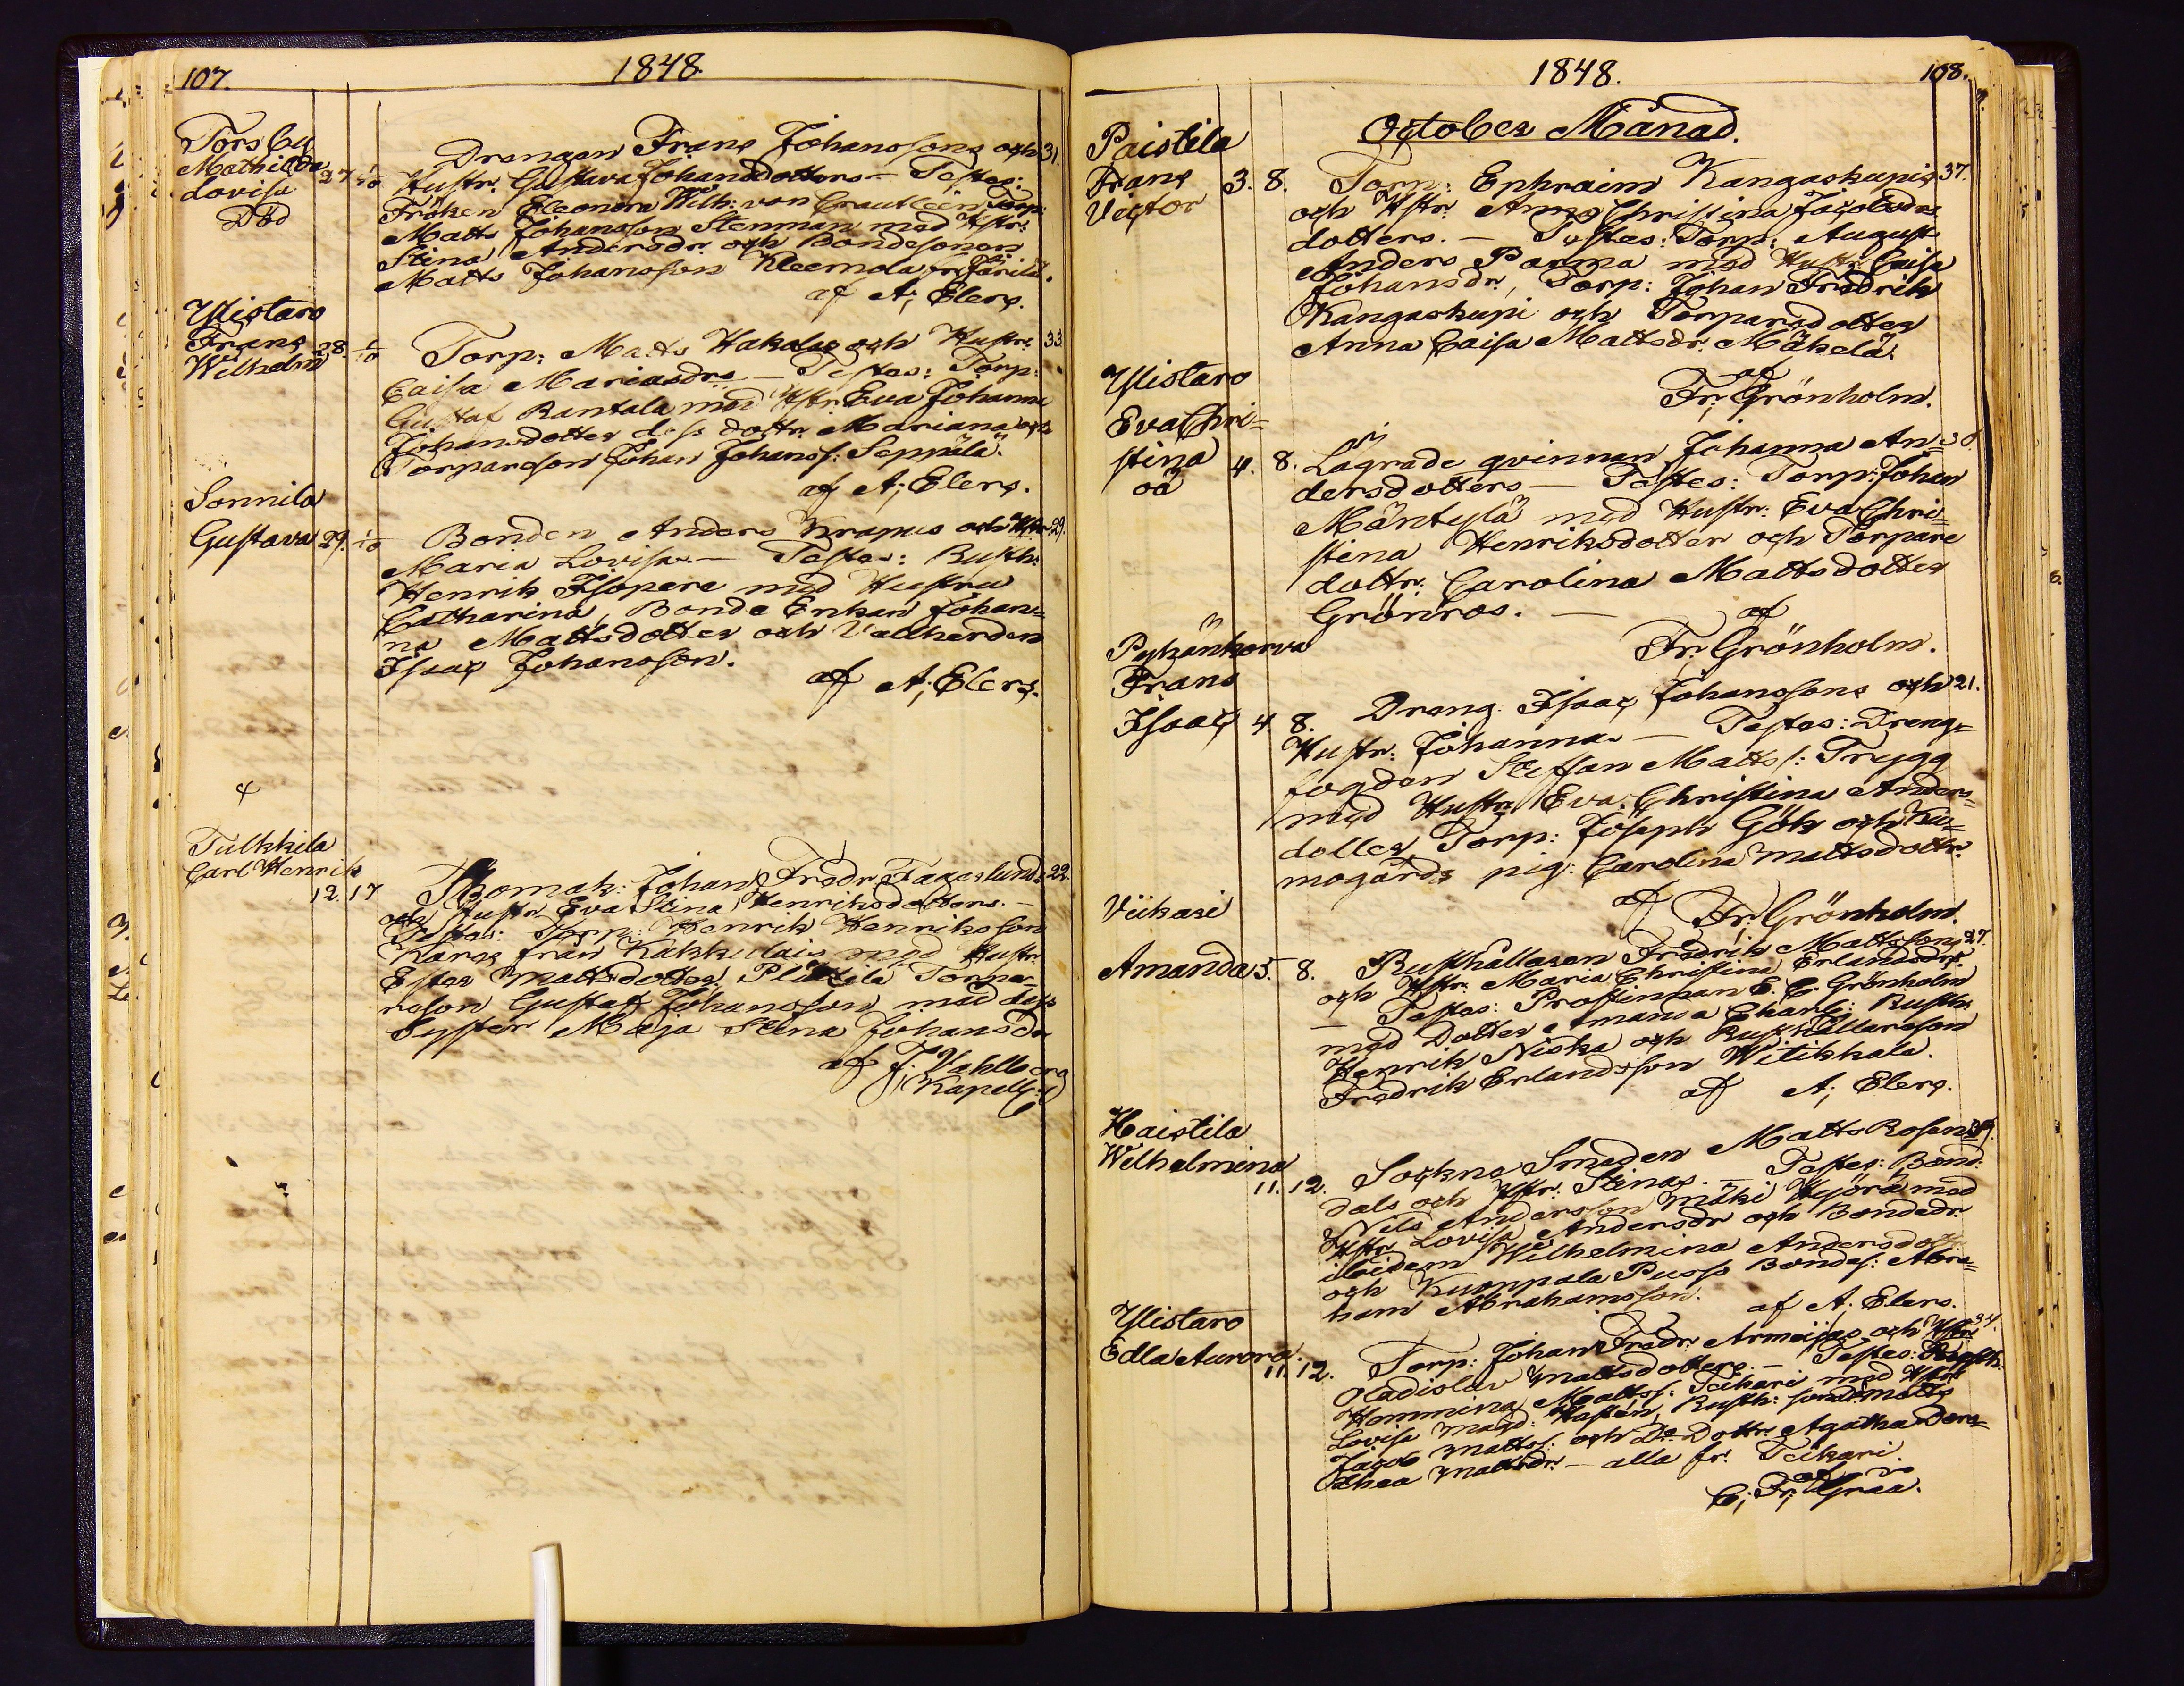 107.
1848.
Torsby
Mathilda
Lovisa
Död
27. 1/10
Drengen Frans Johanssons och 31.
Hustr. Gustava Johansdotters — Testes:
Fröken Eleonora Wilh: von Torp:
Matts Johansson Stenman med Hstr:
Stina Andersdr. och Bondesonen
Matts Johansson Kleemola fr.
af A; Elers.
Ylistaro
Frans
Wilhelm
28. 1/10
Torp: Matts Hakalas och Hustrs 33
Caisa Mariasdrs — Testes: Torp:
Gustaf Rantala med Hstr. Eva Johanna
Johansdotter dess dottr. Mariana och
Torpareson Johan Johans: Seppälä.
af A; Elers.
Sonnila
Gustava 29. 1/10
Bonden Anders Krapus och Hstr. 29.
Maria Lovisas — Testes: Rusth:
Henrik Isopere med Hustru
Catharina, Bonde Enkan Johan=
na Mattsdotter och Vallherden
Isaac Johansson.
af A; Elers.
Tulkkila
Carl Henrik
12. 17
Skomak: Johan Fredr. Fagerlunds 22.
och Hustr. Eva Stina Henriksdotters. —
Testes: Torp: Henrik Henriksson
Karos från Kakkulais med Hustr.
Ester Mattsdotter, Torpa=
reson Gustaf Johansson med dess
Syster Maja Stina Johansdr
af J: Vahlberg
Kapells:
1848.
108.
October Månad.
Paistila
Frans
Victor
3. 8.
Torp: Ephraim Kangaskupis 37.
och Hstr. Anna Christina Jacobs
dotters. — Testes: Torp: August
Anders Panma med Hustr. Caisa
Johansdr, Torp: Johan Fredrik
Kangaskupi och Torparedotter
Anna Caisa Mattsdr. Mäkelä.
af
Fr; Grönholm.
Ylistaro
Eva Chri=
stina
oä
4. 8.
Lägrade qvinnan Johanna An=
dersdotters — Testes: Torp: Johan
Mäntylä med Hustr. Eva Chri=
stina Henriksdotter och Torpare
dottr. Carolina Mattsdotter
Grönros. —
af
Fr; Grönholm.
Pyhänkorva
Frans
Isaac 4 8.
Dreng. Isaac Johanssons och 21.
Hustr: Johannas — Testes: Dreng=
fogden Steffan Matts s: Trygg
med Hustr. Eva Christina Anders=
dotter Torp: Joseph Gök och Ku=
mogårds pig: Carolina Mattsdottr.
af Fr; Grönholm
Viikari
Amanda 5. 8.
Rusthållaren Fredrik Mattssons 27.
och Hstr. Maria Christina Erlandsdrs
— Testes: Prostinnan E. C. Grönholm
med Dotter Amanda Charl; Rusth:
Henrik Niska och Rusthållareson
Fredrik Erlandsson Witikkala.
af A; Elers.
Haistila
Wilhelmina
11. 12.
Sockne Smeden Matts Rosen= 39.
dals och Hstr. Stinas. — Testes: Bond:
Nils Andersson Mäki Hyörä med
Hstr. Lovisa Andersdr och Bondedr.
ibidem Wilhelmina Andersdotter
och Kumppala Puss Bondes: Abra=
ham Abrahamsson.
af A; Elers.
Ylistaro
Edla Aurora.
11. 12.
Torp: Johan Fredr. Armeijas och Hstr. 34.
Ladislav Mattsdotters. — Testes: Rusth:
Hemming Matts s: Teikari med Hstr.
Lovisa Magd: Hasten, Rusth: son Matts
Jacob Matts s: och Do Dottr. Agatha Doro=
thea Mattsdr. — alla fr. Teikari.
af
C; Fr; Gråå.